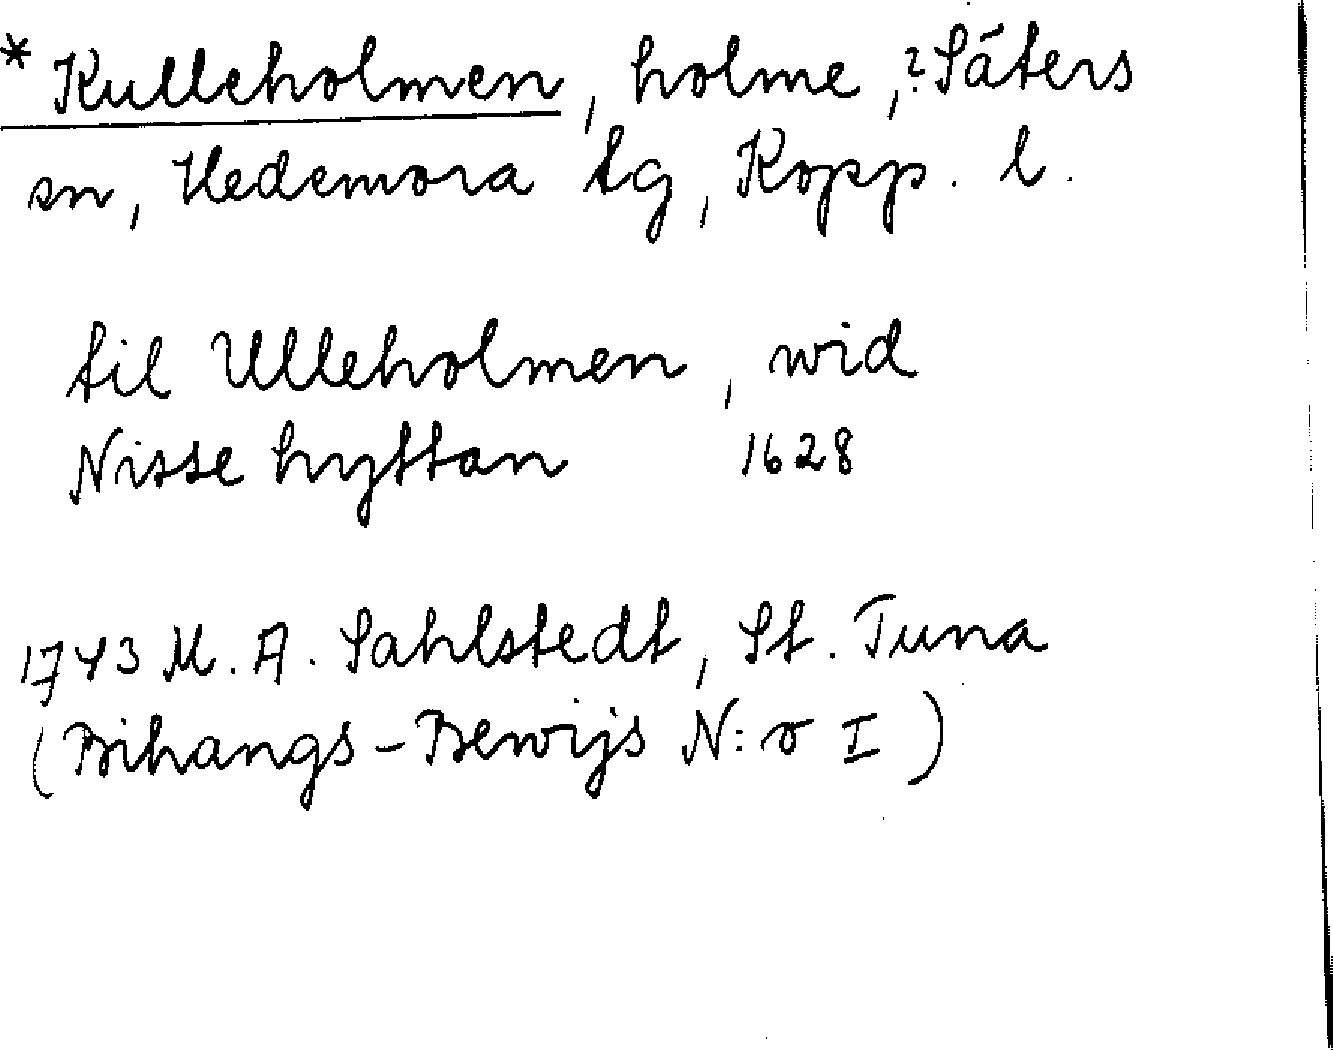 * Kulleholmen, holme, ? Säters
sn, Hedemora tg, Kopp. l.
til Ulleholmen, wid
Nisse hyttan 1628
1743 M. A. Sahlstedt, St. Tuna
(Bihangs-Bewijs N:o I)